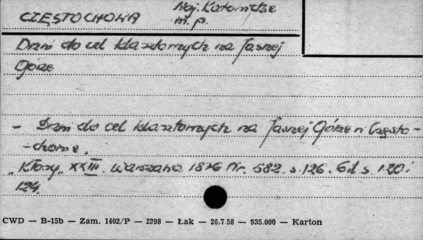 CZĘSTOCHOWA
Woj. Katowickie
m. p.
Drzwi do cel klasztornych na Jasnej
Górze
- Drzwi do cel klasztornych na Jasnej Górze w Często-
-chowie.
"Kłosy" XXIII. Warszawa 1876 Nr. 582. s. 126. s. 120 i
124.
CWD — B-15b — Zam. 1402/P — 2398 — Łak — 26.7.58 — 935.000 — Karton